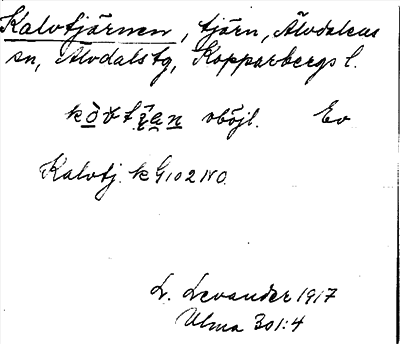 Kalvtjärnen, tjärn, Älvdalens
sn, Älvdals tg, Kopparbergs l.
oböjl. Ev
Kalvtj. k G102 NO.
L. Levander 1917
Ulma 301:4